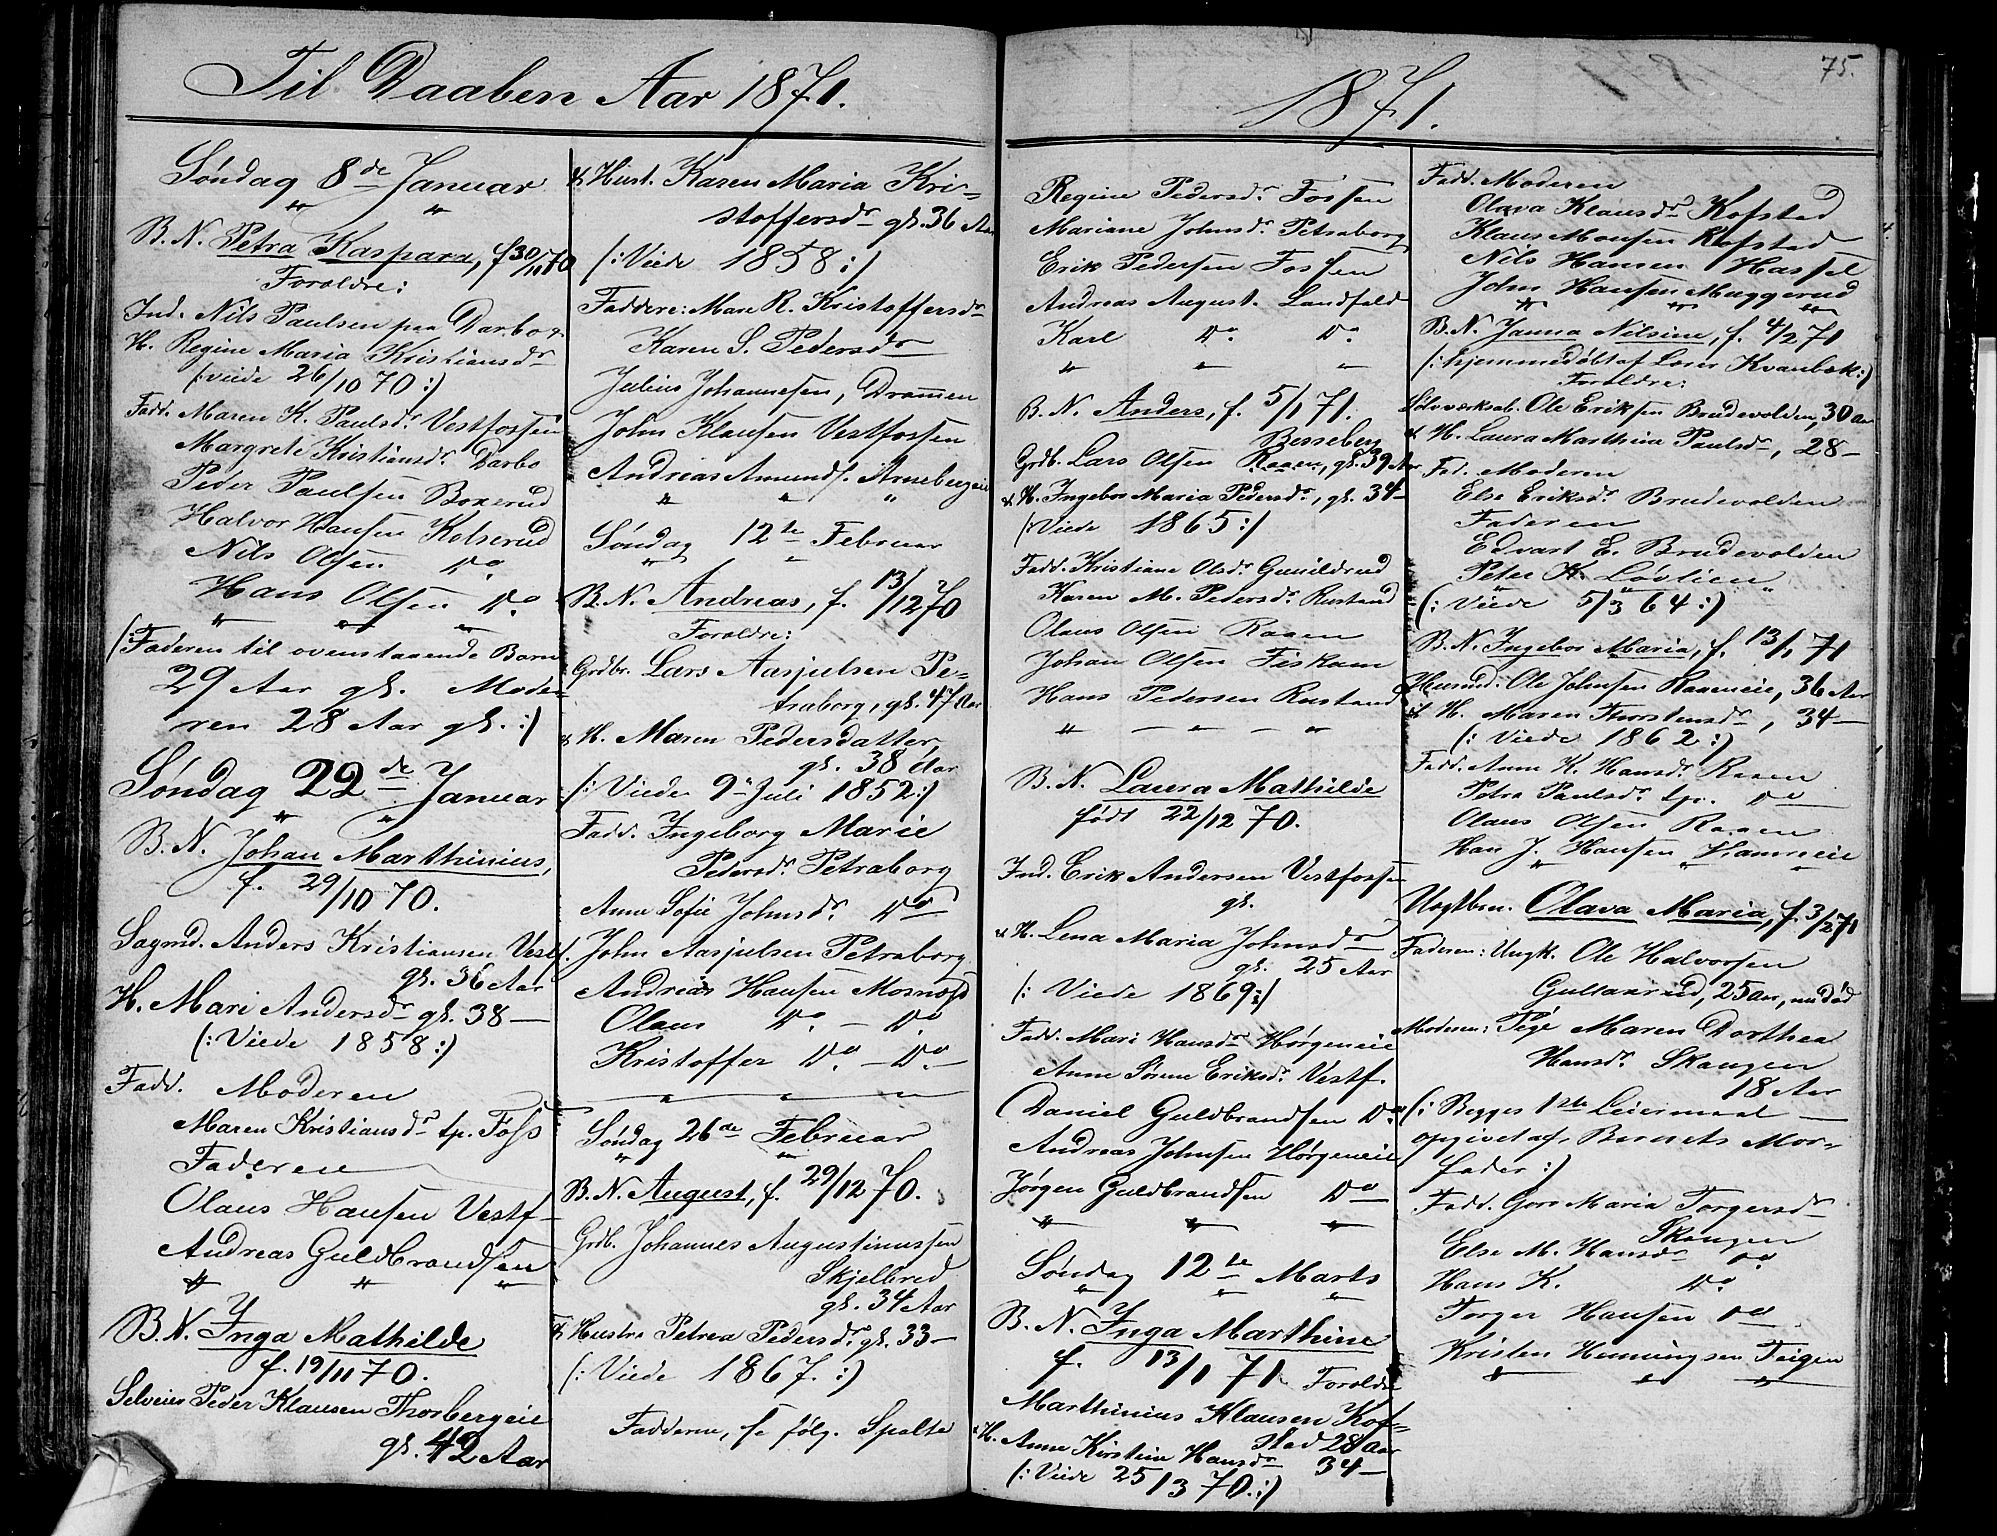 Til Daaben Aar 1871.
Søndag 8de Januar
B. N. Petra Kaspara, f 30/11 70
Foreldre:
Ind. Nils Paulsen paa Darbo &
H. Regine Maria Kristiansdr
(: viede 26/10 70 :)
Fadd. Maren K. Paulsdr Vestfossen
Margrete Kristiansdr. Darbo
Peder Paulsen Boxerud
Halvor Hansen Kolserud
Nils Olsen Do.
Hans Olsen Do
" " "
(: Faderen til ovenstaaende Barn
29 Aar gl. Mode-
ren 28 Aar gl. :)
Søndag 22de Januar
" "
B. N. Johan Marthinius,
f. 29/10 70.
Sagmd. Anders Kristiansen Vestf.
gl. 36 Aar
H. Mari Andersdr gl. 38 —
(: Viede 1858 :)
Fadd. Moderen
Maren Kristiansdr tp. Foss
Faderen
Olaus Hansen Vestf—
Andreas Guldbrandsen
" " "
B. N. Inga Mathilde
f. 19/11 70.
Selveier Peder Klausen Thorbergeie
gl. 42 Aar
& Hust. Karen Maria Kri-
stoffersdr gl. 36 Aar
(: Viede 1858 :)
Faddere: Mare R. Kristoffersdr
Karen S. Pedersdr
Julius Johannesen, Dramen
John Klausen Vestfossen
Andreas Amunds. Arnebergeie
" " "
Søndag 12te Februar
" "
B. N. Andreas, f. 13/12 70
Foreldre:
Grdbr. Lars Aasjulsen Pe-
traborg, gl. 47 Aar
& H. Maren Pedersdatter,
gl. 38 Aar
(: Viede 9 Juli 1852 :)
Fadd. Ingeborg Marie
Pedersdr. Petraborg
Anne Sofie Johnsdr. Do
John Aasjulsen Petraborg
Andreas Hansen Mosnæsd
Olaus Do. — Do.
Kristoffer Do — Do. —
" " "
Søndag 26de Februar
" "
B. N. August, f. 29/12 70.
Grdb. Johannes Augustinussen
Skjelbred
gl. 34 Aar
& Hustru Petrea Pedersdr. gl. 33 —
(: Viede 1867. :)
Fadderne, se følg. Spalte
1871.
75.
Regine Pedersdr Fossen
Mariane Johnsdr Petraborg
Erik Pedersen Fossen
Andreas August. Landfald
Karl Do. Do.
" " "
B. N. Anders, f. 5/1 71.
Besseberg
Grdb. Lars Olsen Raaen, gl. 39 Aar
& H. Ingebor Maria Pedersdr, gl. 34 —
(: Viede 1865 :)
Fadd. Kristiane Olsdr. Gunildrud
Karen M. Pedersdr. Rustand
Olaus Olsen Raaen
Johan Olsen Fiskum
Hans Pedersen Rustand
" — — "
B. N. Laura Mathilde
født 22/12 70.
Ind. Erik Andersen Vestfossen
gl.
& H. Lena Maria Johnsdr
gl. 25 Aar
(: Viede 1869 :)
Fadd. Mari Hansdr Hørgeneie
Anne Sørine Eriksdr. Vestf.
Daniel Guldbrandsen Do
Andreas Johnsen Hørgeneie
Jørgen Guldbrandsen Do
" " "
Søndag 12te Marts
" " "
B. N. Inga Marthine
f. 13/1 71 Foreldre
Marthinius Klausen Kof-
stad 28 Aar
& H. Anne Kirstine Hansdr 34 —
(: Viede 25/3 70. :)
Fadd. Moderen
Olava Klausdr Kofstad
Klaus Monsen Kofstad
Nils Hansen Hassel
John Hansen Muggerud
" " "
B. N. Janna Nilsine, f. 4/2 71
(: hjemmedøbt af Lærer Kvanbæk :)
Foreldre:
Sølvværksab. Ole Eriksen Brudevolden, 30 Aar
& H. Laura Marthea Paulsdr, 28 —
Fad. Moderen
Else Eriksdr. Brudevolden
Faderen
Edvart E. Brudevolden
Peter K. Løvlien
" " "
(: Viede 5/3 64 :)
B. N. Ingebor Maria, f. 13/1 71
Husmd. Ole Johnsen Raaeneie, 36 Aar
& H. Maren Thorstensdr, 34 —
(: Viede 1862 :)
Fadd. Anne K. Hansdr. Raaen
Petra Paulsdr. tp. Do
Olaus Olsen Raaen
Han J. Hansen
" " "
Uægtbn. Olava Maria, f. 3/2 71
Faderen: Ungk. Ole Halvorsen
Gullaarud, 25 Aar, nu død
Moderen: Pige Maren Dorthea
Hansdr. Skangen
18 Aar
(: Begges 1ste Leiermaal —
opgivet af Barnets Mor-
fader :)
Fadd. Goro Maria Torgersdr
Skangen
Else M. Hansdr Do.
Hans K. Do.
Torger Hansen Do
Kristen Henningsen Teigen
" " "